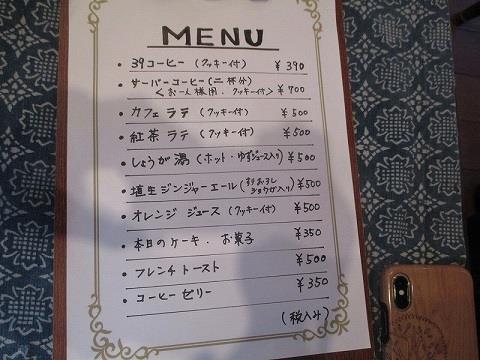 MENU
・39コーヒー (クッキー付) ¥390
・サーバーコーヒー(二杯分)
<お一人様用. クッキー付> ¥700
・カフェラテ (クッキー付) ¥500
・紅茶ラテ (クッキー付) ¥500
・しょうが湯 (ホット・ゆずジュース入り) ¥500
・埴生ジンジャーエール(すりおろしショウガ入り) ¥500
・オレンジジュース (クッキー付) ¥500
・本日のケーキ. お菓子 ¥350
・フレンチトースト ¥500
・コーヒーゼリー ¥350
(税込み)